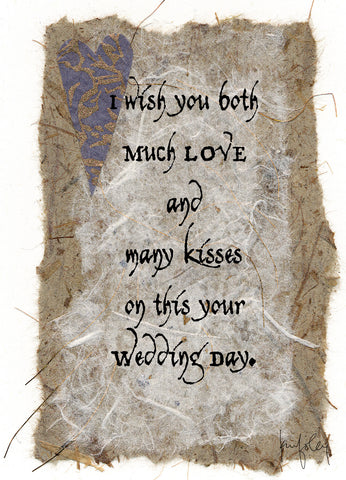 I wish you both
Much LOVE
and
many kisses
on this your
Wedding Day.